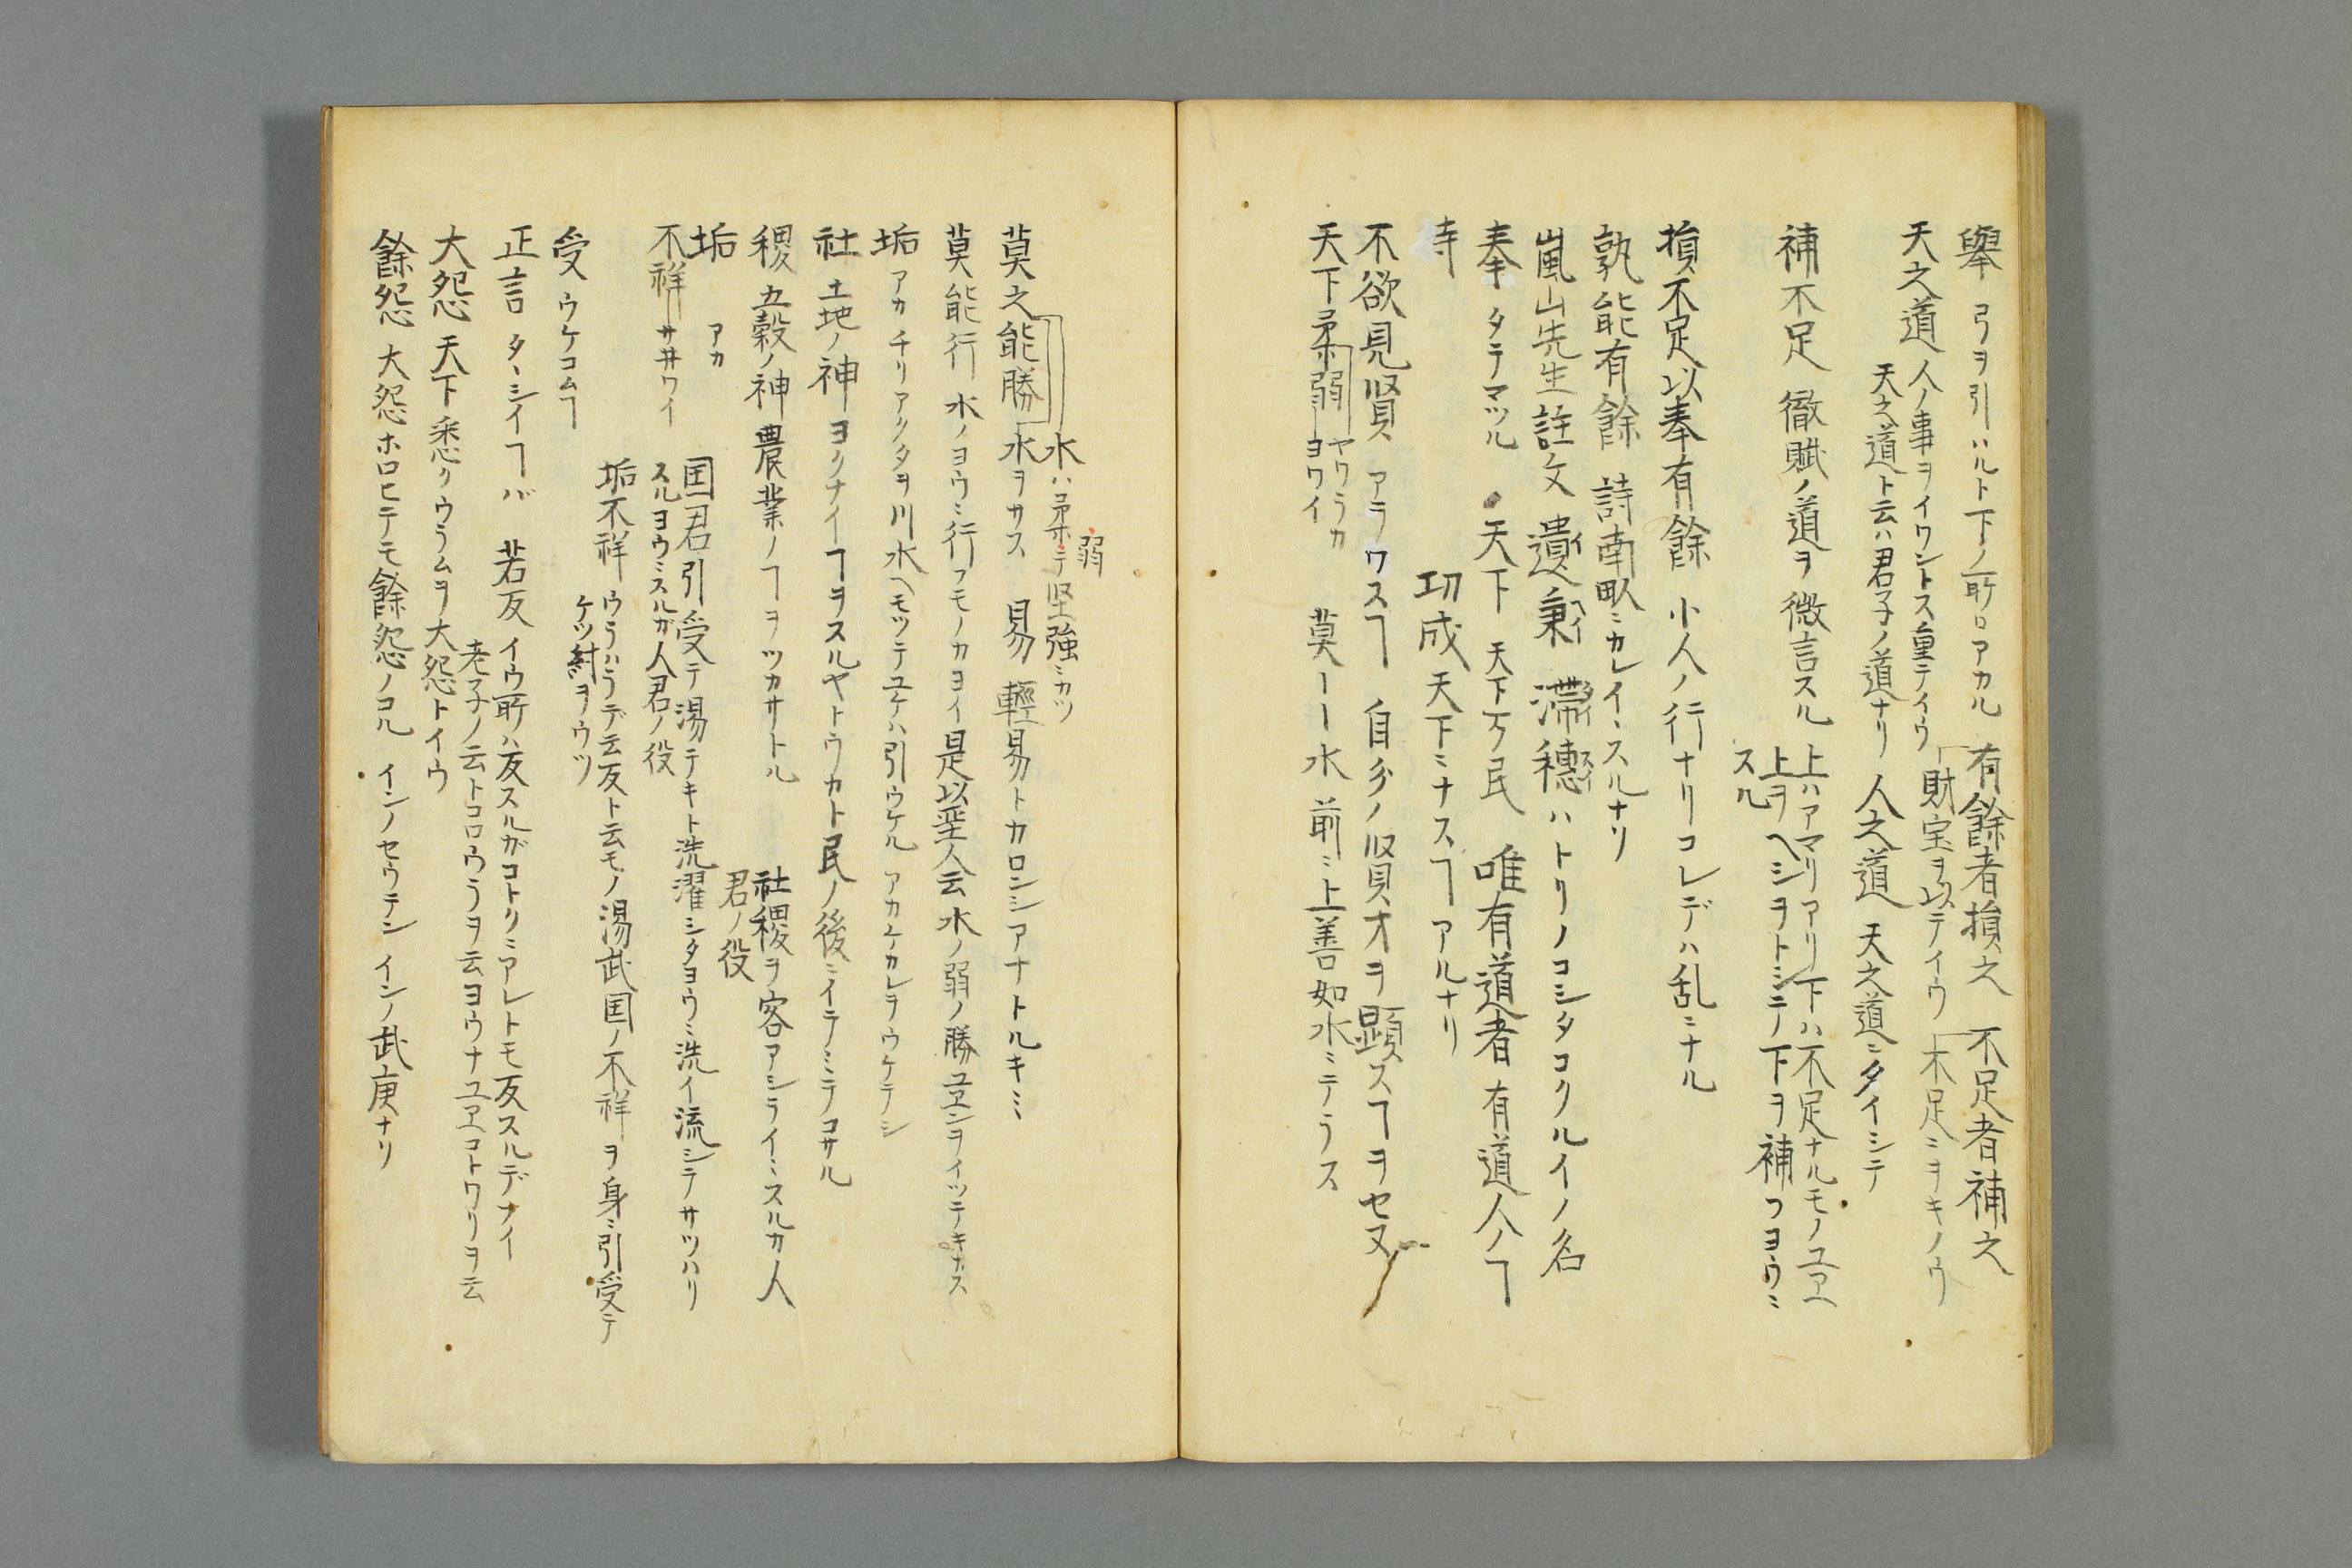 擧 弓ヲ引ハルト下ノ所ロアカル 有餘者損之 不足者補之
天之道 人ノ事ヲイワントス重テイウ 「財宝ヲ以テイウ 「不足ニヲキノウ
天之道ト云ハ君子ノ道ナリ 人之道 天之道ニタイシテ
補不足 徹賦ノ道ヲ微言スル 上ハアマリアリ下ハ不足ナルモノユヱ
上ヲヘシヲトシテノ下ヲ補フヨウニ
スル
損不足以奉有餘 小人ノ行ナリコレデハ乱ニナル
孰能有餘 詩南畝ニカレイニスルナリ
嵐山先生註文 遺秉 滞穗ハトリノコシタコクルイノ名
奉 タテマツル 天下 天下万民 唯有道者 有道人ノヿ
寺 功成 天下ニナスヿアルナリ
不欲見賢 アラワスヿ 自分ノ賢才ヲ顕スヿヲセヌ
天下柔弱 ヤワラカ ヨワイ 莫ーー水 前ニ上善如水ニテラス
弱
水ハ柔ニテ堅強ニカツ
莫之能勝 水ヲサス 易 輕易トカロシアナトルキミ
莫能行 水ノヨウニ行フモノカヨイ 是以聖人云 水ノ弱ノ勝ユヱンヲイツテキナス
垢 アカ チリアクタヲ川水ヘモツテユケハ引ウケル アカケカレヲウケテシ
社 土地ノ神 ヨクナイヿヲスルヤトウカト民ノ後ニイテミテコサル
稷 五穀ノ神 農業ノヿヲツカサトル 社稷ヲ客アシライニスルカ人
君ノ役
垢 アカ 国君引受テ湯テキト洗濯シタヨウニ洗イ流シテサツハリ
不祥 サヰワイ スルヨウニスルガ人君ノ役
垢不祥 ウラハラデ云反ト云モノ湯武国ノ不祥ヲ身ニ引受テ
ケツ紂ヲウツ
受 ウケコムヿ
正言 タヽシイヿバ 若反 イウ所ハ反スルガコトクニアレトモ反スルデナイ
老子ノ云トコロウラヲ云ヨウナユヱコトワリヲ云
大怨 天下悉クウラムヲ大怨トイウ
餘怨 大怨ホロヒテモ餘怨ノコル インノセウテシ インノ武庚ナリ